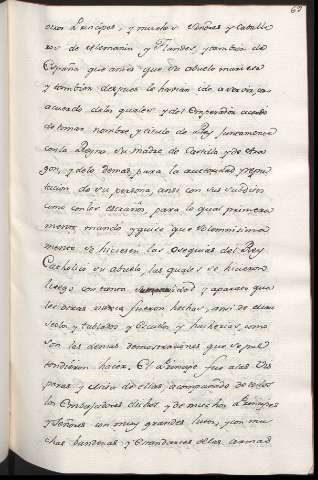 69
otros Principes, y muchos Señores y Caballe
ros de Alemania y Flandes, y tambien de
España que antes que su abuelo muriese
y tambien despues lo havian de
acuerdo de los quales y del Emperador acordó
de tomar nombre y titulo de Rey juntamente
con la Reyna su madre de Castilla y de Ara
gon, y de lo demas, para la autoridad y repu
tacion de su persona, ansi con sus subditos
como con los estraños, para lo qual primera
mente mando y quiso que solemnissima
mente se hiciesen las exequias del Rey
Catholico su abuelo, las quales se hicieron
luego con tanta y aparato qual
otras nunca fueron hechas, ansi de
y tablados y y como
son las demas demostraciones que se pu
dieron hacer. El Principe fue a las Vis
peras y Misa de ellas acompañado de todos
los Consejadores dichos y de muchos Principes
y Señores con muy grandes lutos, y con mu
chas banderas y Estandartes de las armas